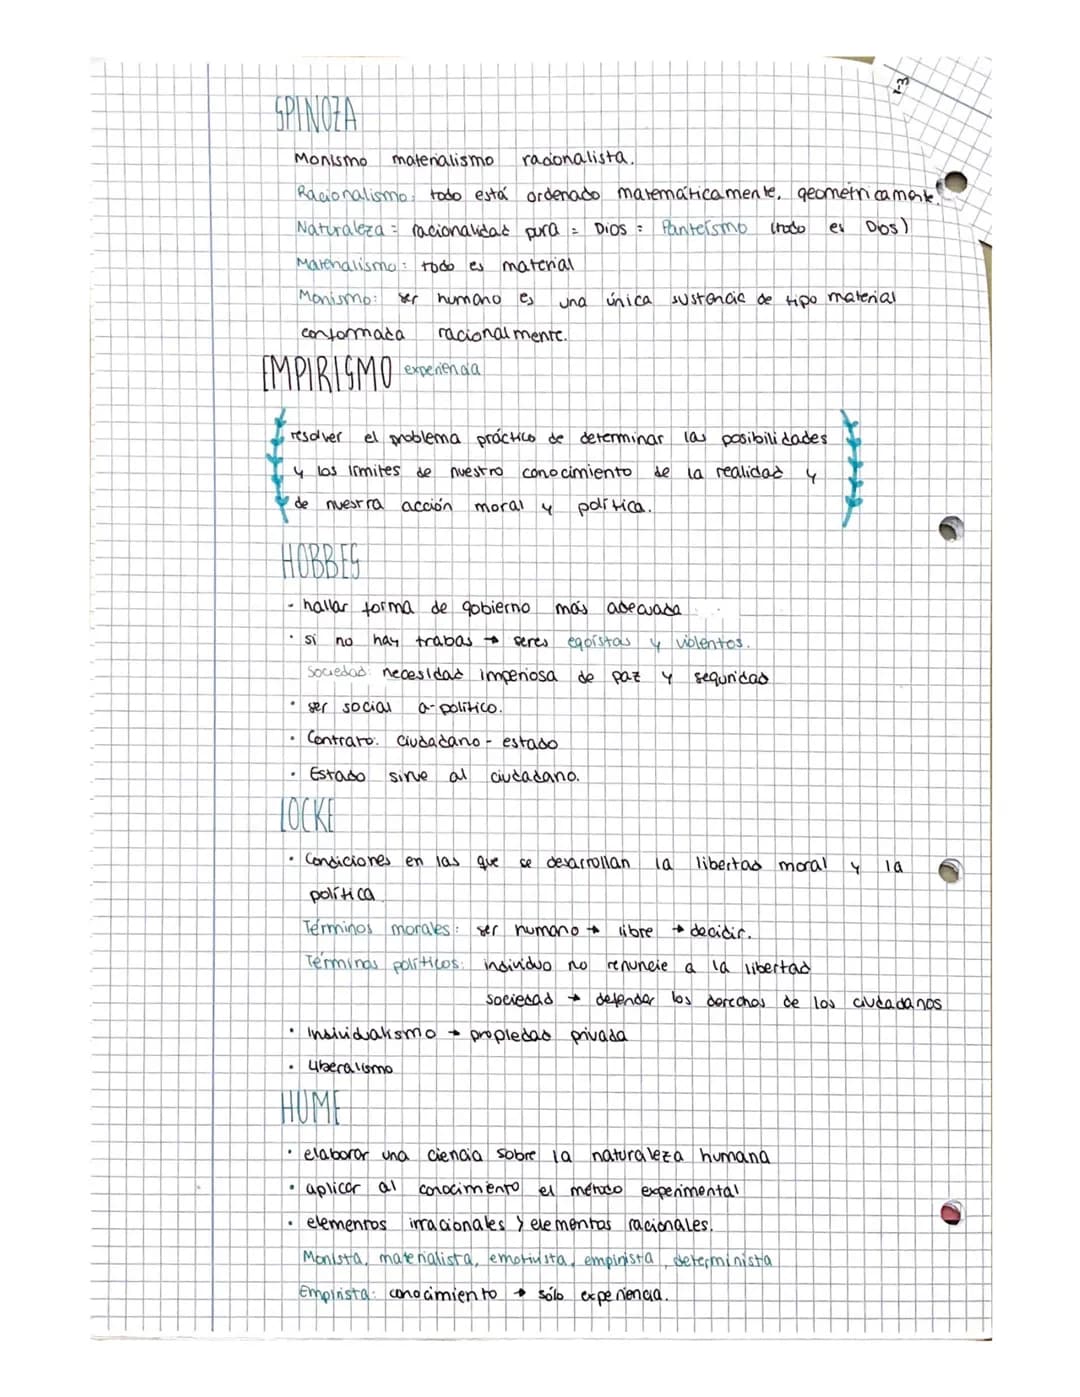 1-3
SPINOZA
Monismo materialismo racionalista.
Racionalismo: todo está ordenado matemáticamente, geométricamente.
Naturaleza = racionalidad pura = Dios = Panteísmo (todo es Dios)
Materialismo: todo es material
Monismo: ser humano es una única sustancia de tipo material
conformada racionalmente.
EMPIRISMO experiencia
resolver el problema práctico de determinar las posibilidades
y los límites de nuestro conocimiento de la realidad y
de nuestra acción moral y política.
HOBBES
- hallar forma de gobierno más adecuada
· si no hay trabas → seres egoístas y violentos.
Sociedad: necesidad imperiosa de paz y seguridad
· ser social a-político.
· Contrato: ciudadano - estado
· Estado sirve al ciudadano.
LOCKE
· Condiciones en las que se desarrollan la libertad moral y la
política
Términos morales: ser humano → libre → decidir.
Términos políticos: individuo no renuncie a la libertad
sociedad → defender los derechos de los ciudadanos
· Individualismo → propiedad privada
· Liberalismo
HUME
· elaborar una ciencia sobre la naturaleza humana
· aplicar al conocimiento el método experimental
· elementos irracionales > elementos racionales.
Monista, materialista, emotivista, empirista, determinista
Empirista: conocimiento → sólo experiencia.